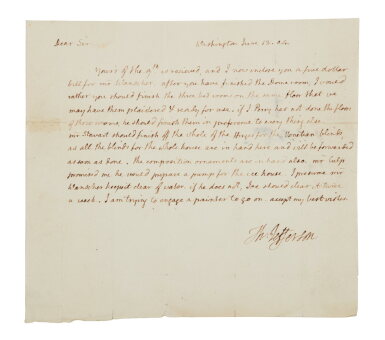 Dear Sir Washington June 12. 04.
Yours of the 9th is recieved, and I now inclose you a five dollar
bill for mr Wanscher. after you have finished the Dome room, I would
rather you should finish the three bed rooms on the same floor that we
may have them plaistered & ready for use. if J Perry has not done the floors
of these rooms, he should finish them in preference to every thing else.
mr Stewart should finish off the whole of the for the Venetian blinds
as all the blinds for the whole house are in hand here and will be forwarded
as soon as done. the composition ornaments are in hand also. mr
promised me he would prepare a pump for the ice house. I presume mr
Wanscher keeps it clear of water. if he does not, Joe should clear it twice
a week. I am trying to engage a painter to go on. accept my best wishes.
Th: Jefferson